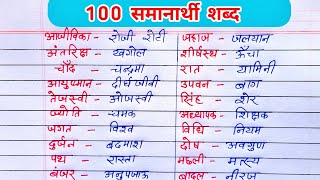 100 समानार्थी शब्द
आजीविका - रोजी रोटी
अंतरिक्ष - खगोल
चाँद - चन्द्रमा
आयुष्मान - दीर्घ जीवी
तेजस्वी - ओजस्वी
ज्योति - चमक
जगत - विश्व
दुर्जन - बदमाश
पथ - रास्ता
बंजर - अनुपजाऊ
जहाज - जलयान
शीर्षस्थ - ऊँचा
रात - यामिनी
उपवन - बाग
सिंह - शेर
अध्यापक - शिक्षक
विधि - नियम
दोष - अवगुण
मछली - मत्स्य
बादल - नीरज